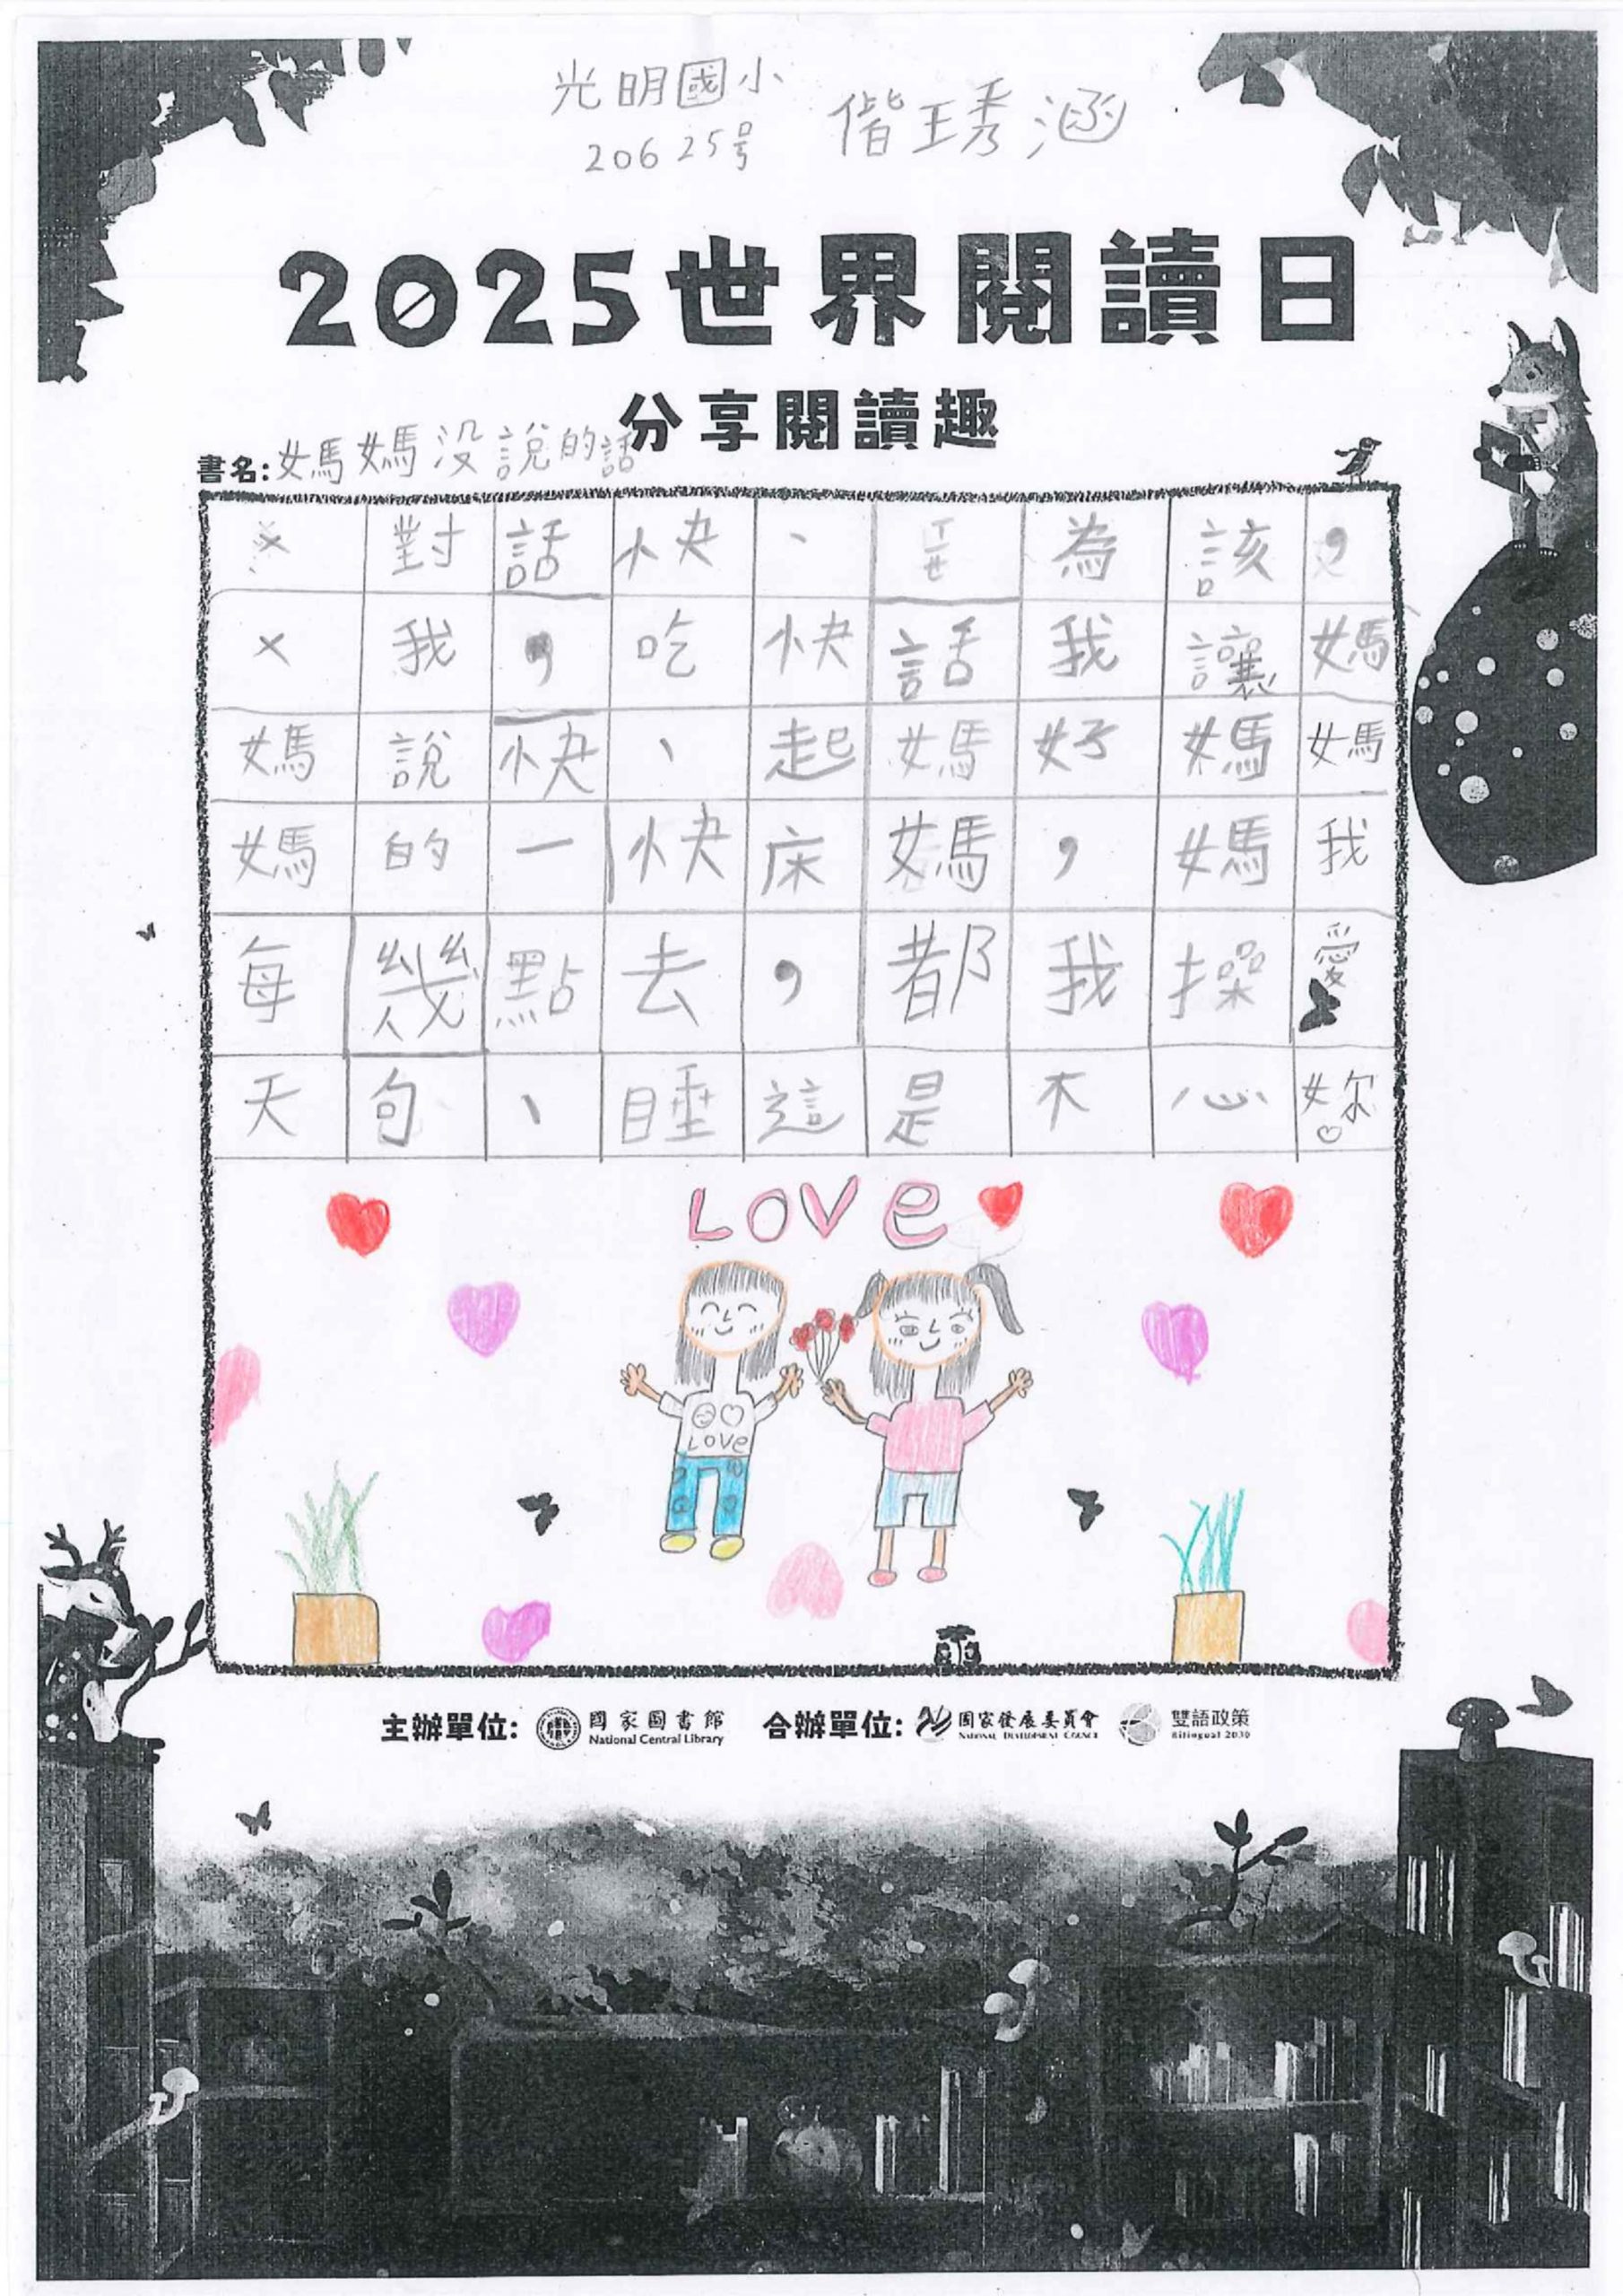 光明國小
20625号 偕琇涵
2025世界閱讀日
分享閱讀趣
書名:媽媽没說的話
××媽媽每天
對我說的幾句
話，快一點、
快吃、快去睡
、快起床，這
ㄒㄧㄝ話媽媽都是
為我好，我不
該讓媽媽操心
，媽媽我愛妳
LOVe
LOVe
主辦單位: 國家圖書館 National Central Library 合辦單位: 國家發展委員會 NATIONAL DEVELOPMENT COUNCIL 雙語政策 Bilingual 2030